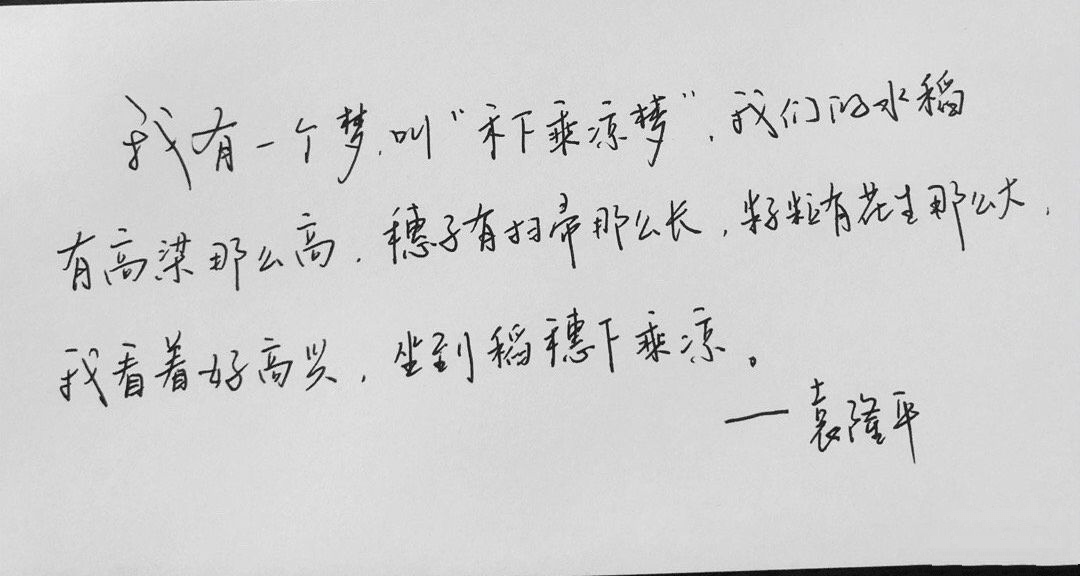 我有一个梦,叫“禾下乘凉梦”,我们的水稻
有高粱那么高,穗子有扫帚那么长,籽粒有花生那么大,
我看着好高兴,坐到稻穗下乘凉。
——袁隆平